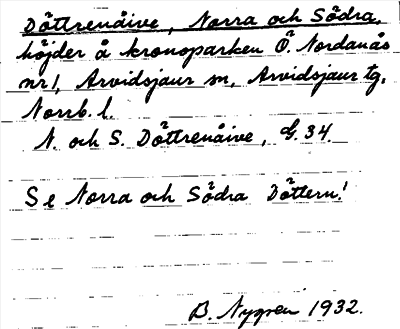 Döttrenåive, Norra och Södra,
höjder å kronoparken Ö. Nordanås
nr 1, Arvidsjaur sn, Arvidsjaur tg,
Norrb. l.
N. och S. Döttrenåive, G. 34.
Se Norra och Södra Döttern!
B. Nygren 1932.